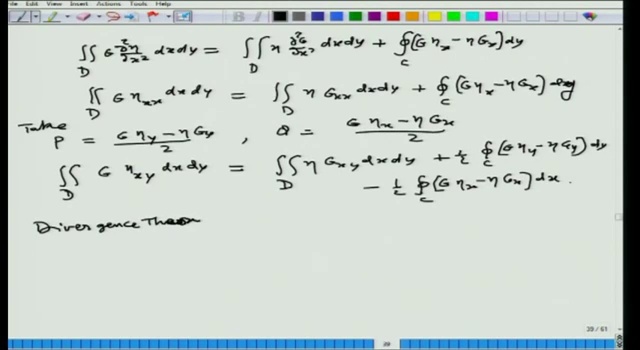 File Edit View Insert Actions Tools Help
∬_D G ∂²η/∂x² dxdy = ∬_D η ∂²G/∂x² dxdy + ∮_C (G η_x − η G_x) dy
∬_D G η_xx dxdy = ∬_D η G_xx dxdy + ∮_C (G η_x − η G_x) dy
Take P = (G η_y − η G_y)/2 , Q = (G η_x − η G_x)/2
∬_D G η_xy dxdy = ∬_D η G_xy dxdy + 1/2 ∮_C (G η_y − η G_y) dy
− 1/2 ∮_C (G η_x − η G_x) dx.
Divergence Theorem
39 / 61
39